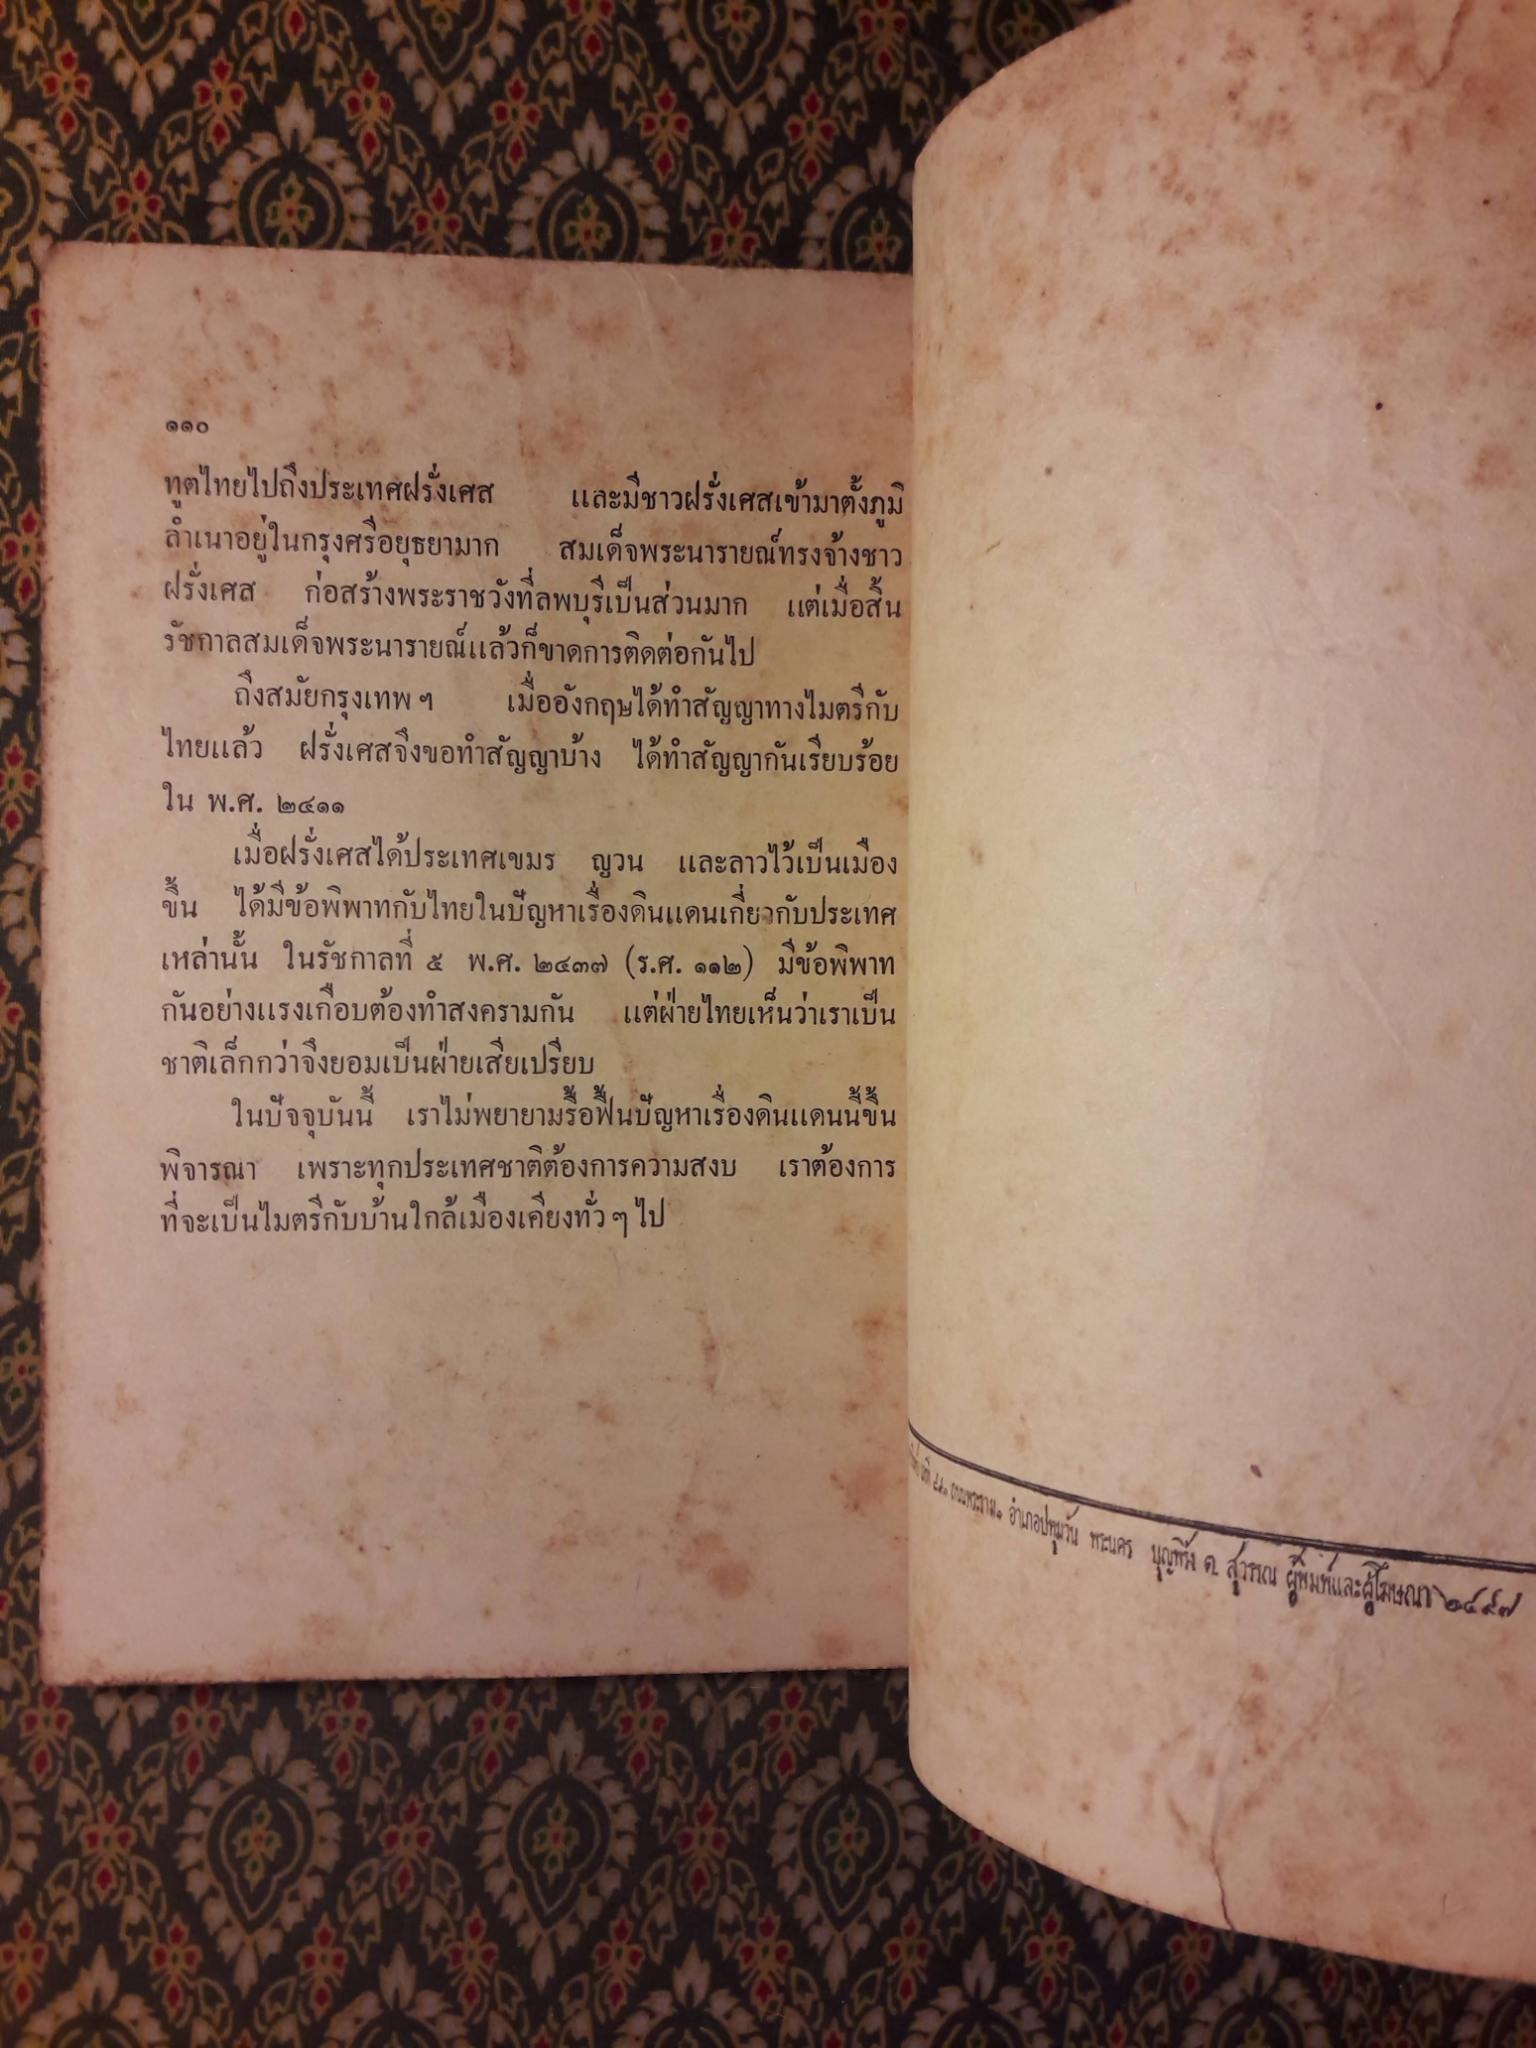 ๑๑๐
ทูตไทยไปถึงประเทศฝรั่งเศส และมีชาวฝรั่งเศสเข้ามาตั้งภูมิ
ลำเนาอยู่ในกรุงศรีอยุธยามาก สมเด็จพระนารายณ์ทรงจ้างชาว
ฝรั่งเศส ก่อสร้างพระราชวังที่ลพบุรีเป็นส่วนมาก แต่เมื่อสิ้น
รัชกาลสมเด็จพระนารายณ์แล้วก็ขาดการติดต่อกันไป
ถึงสมัยกรุงเทพ ๆ เมื่ออังกฤษได้ทำสัญญาทางไมตรีกับ
ไทยแล้ว ฝรั่งเศสจึงขอทำสัญญาบ้าง ได้ทำสัญญากันเรียบร้อย
ใน พ.ศ. ๒๔๑๑
เมื่อฝรั่งเศสได้ประเทศเขมร ญวน และลาวไว้เป็นเมือง
ขึ้น ได้มีข้อพิพาทกับไทยในปัญหาเรื่องดินแดนเกี่ยวกับประเทศ
เหล่านั้น ในรัชกาลที่ ๕ พ.ศ. ๒๔๓๗ (ร.ศ. ๑๑๒) มีข้อพิพาท
กันอย่างแรงเกือบต้องทำสงครามกัน แต่ฝ่ายไทยเห็นว่าเราเป็น
ชาติเล็กกว่าจึงยอมเป็นฝ่ายเสียเปรียบ
ในปัจจุบันนี้ เราไม่พยายามรื้อฟื้นปัญหาเรื่องดินแดนนี้ขึ้น
พิจารณา เพราะทุกประเทศชาติต้องการความสงบ เราต้องการ
ที่จะเป็นไมตรีกับบ้านใกล้เมืองเคียงทั่ว ๆ ไป
ถนนพระราม๑ อำเภอปทุมวัน พระนคร บุญพริ้ง ต. สุวรรณ ผู้พิมพ์และผู้โฆษณา ๒๔๙๗